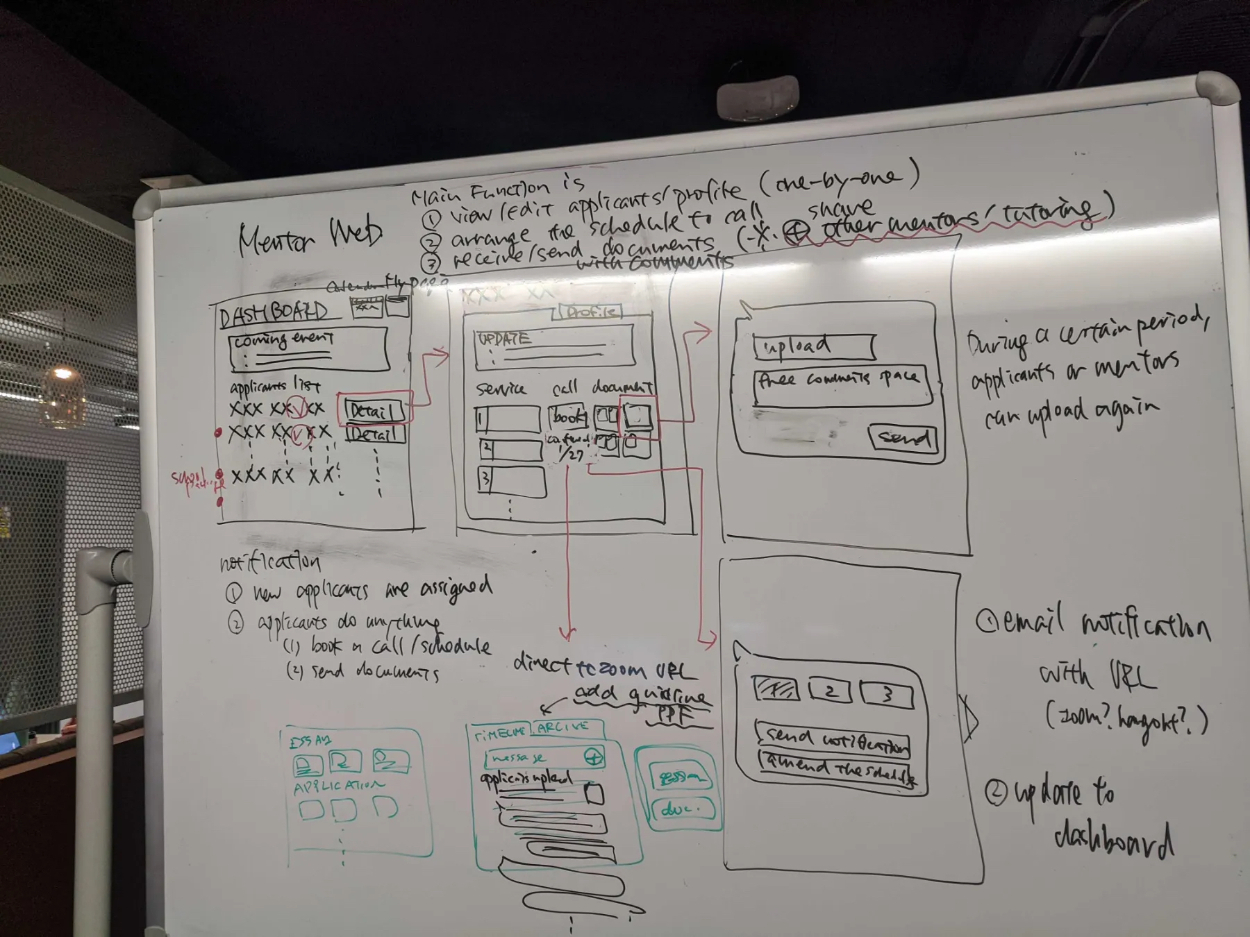 Main Function is
① view/edit applicants/profile (one-by-one)
② arrange the schedule to call
③ receive/send documents
with comments
share
(※ ⊕ other mentors/tutoring)
Mentor Web
DASHBOARD
coming event
applicants list
XXX XX V XX
Detail
XXX XX V XX
Detail
XXX XX XX
XXX XX
Profile
UPDATE
service call document
1
book
2
1/27
3
upload
free comments space
send
During a certain period,
applicants or mentors
can upload again
notification
① new applicants are assigned
② applicants do anything
(1) book a call/schedule
(2) send documents
direct to zoom URL
add guideline
1 2 3
send notification
amend the schedule
① email notification
with URL
② update to
dashboard
ESSAY
APPLICATION
TIMELINE
ARCIVE
message
applicants upload
doc.